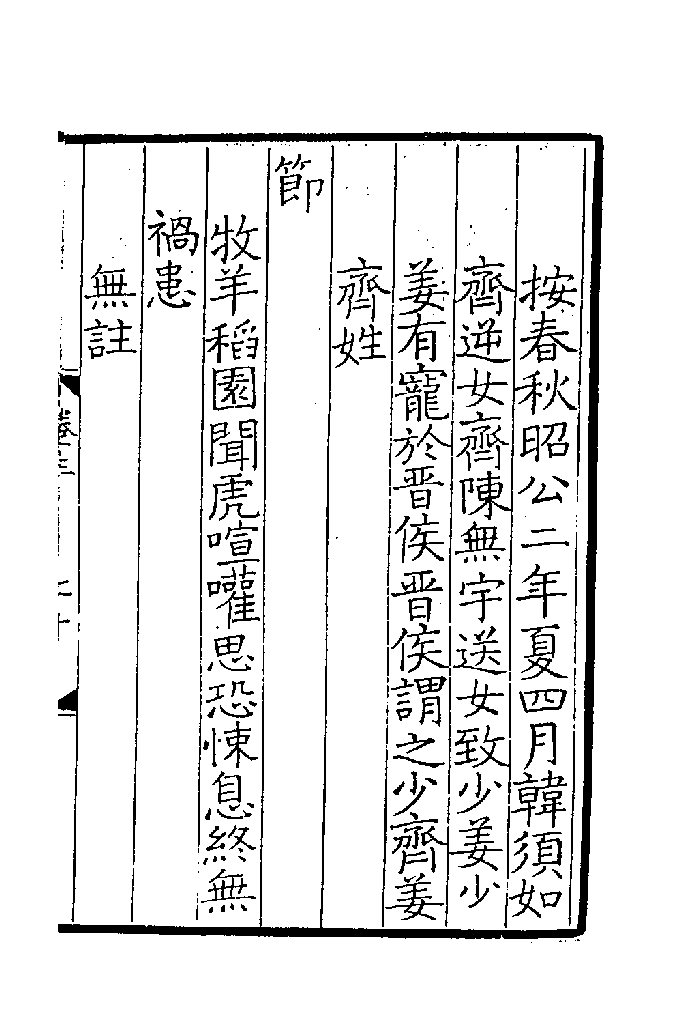 按春秋昭公二年夏四月韓須如
齊逆女齊陳無宇送女致少姜少
姜有寵於晉侯晉侯謂之少齊姜
齊姓
節
牧羊稻園聞虎喧嚾思恐悚息終無
禍患
無註